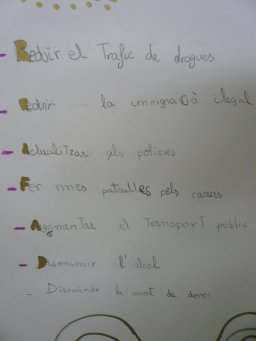 - Reduir el Trafic de drogues
- Reduir la immigració ilegal
- Actualitzar als policies
- Fer mes patrulles pels carrers.
- Augmentar el Transport public
- Disminuir l'alcol
- Disminuir la mort de dones